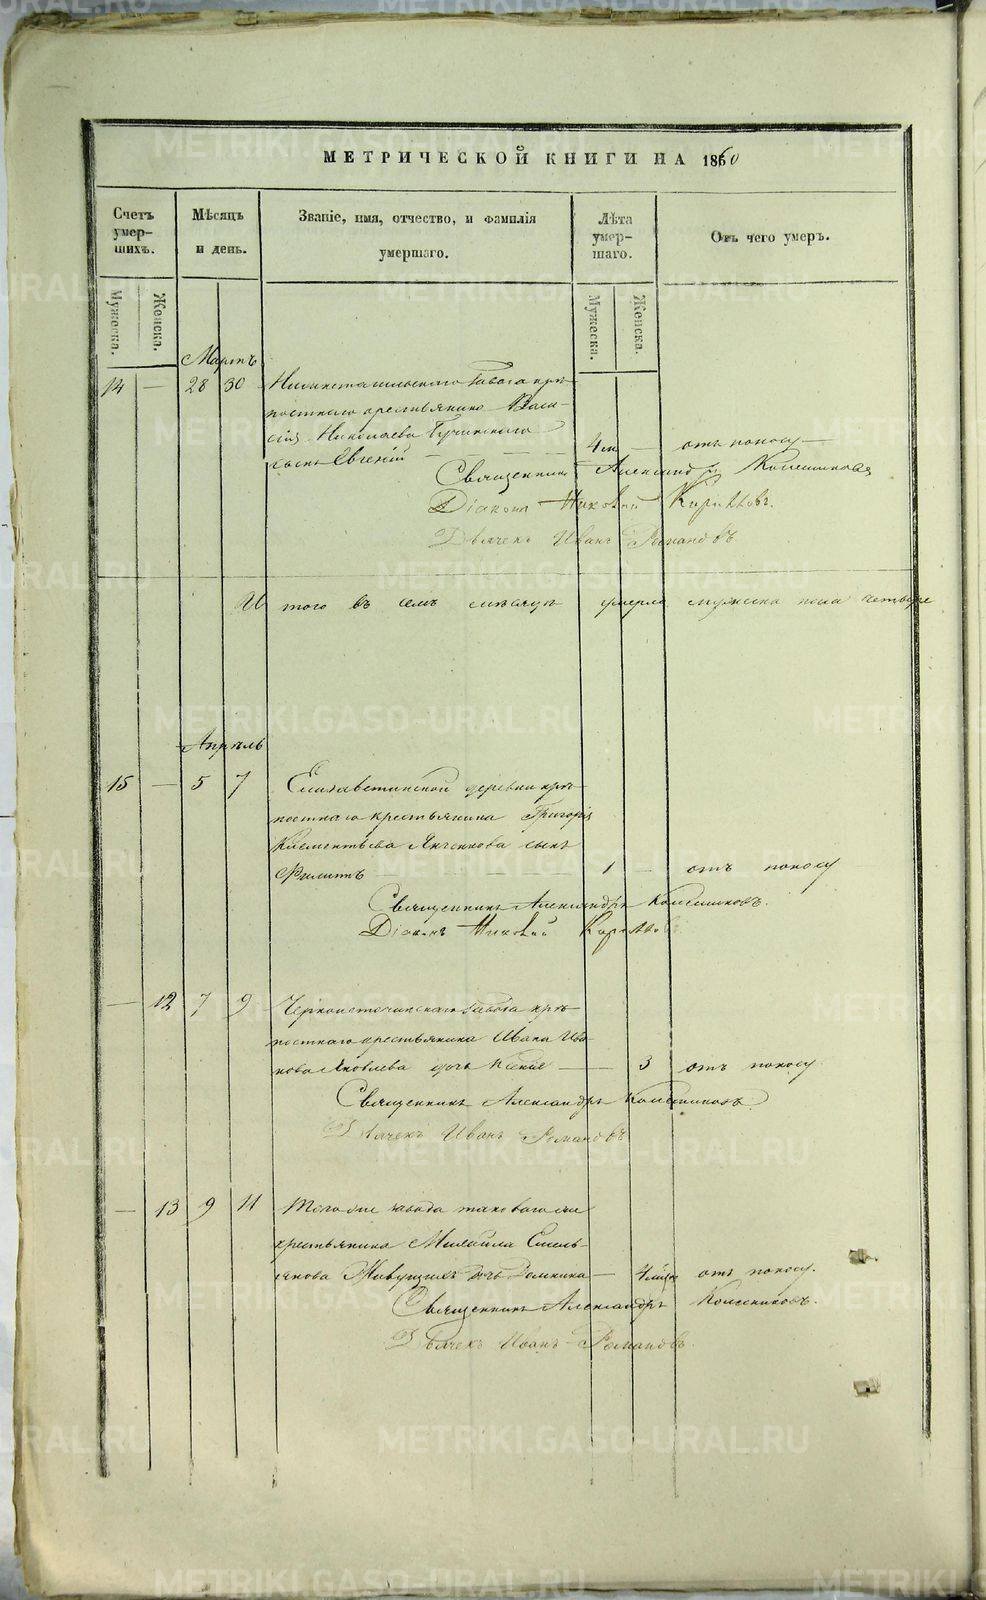 МЕТРИЧЕСКОЙ КНИГИ НА 1860
Счетъ умер-шихъ.
Мѣсяцъ и день.
Званіе, имя, отчество, и фамилія умершаго.
Лѣта умер-шаго.
Отъ чего умеръ.
Мужеска.
Женска.
Мужеска.
Женска.
Мартъ
14 — 28 30 Нижнетагильскаго завода крѣ-
постнаго крестьянина Васи-
лія Николаева
сынъ Евгеній — 4 м — отъ поносу —
Священникъ Александръ Колесниковъ
Діаконъ Николай Кирилловъ.
Дьячекъ Иванъ Романовъ
И того въ семъ мѣсяцѣ умерло мужеска пола четыре
Апрѣль
15 — 5 7 Елизаветинской деревни крѣ-
постнаго крестьянина Григорія
Климентьева сынъ
Филиппъ — 1 — отъ поносу
Священникъ Александръ Колесниковъ.
Діаконъ Николай Кирилловъ
— 12 7 9 Черноисточинскаго завода крѣ-
постнаго крестьянина Ивана Ива-
нова Яковлева дочь Ксенія — 3 отъ поносу
Священникъ Александръ Колесниковъ
Дьячекъ Иванъ Романовъ
— 13 9 11 Того же завода таковаго же
крестьянина Михаила Емель-
янова дочь Домника — 4 мѣс отъ поносу.
Священникъ Александръ Колесниковъ.
Дьячекъ Иванъ Романовъ.
METRIKI.GASO-URAL.RU